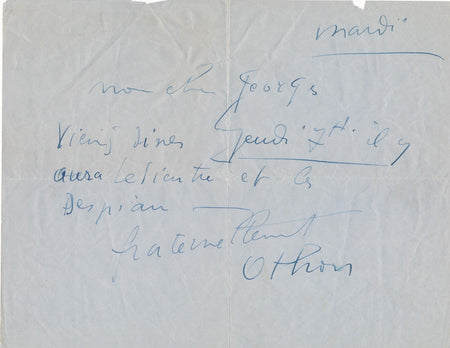 mardi
mon cher Georges
Viens diner Jeudi 7H. il y
aura Lesieutre et les
Despiau —
fraternellement
Othon